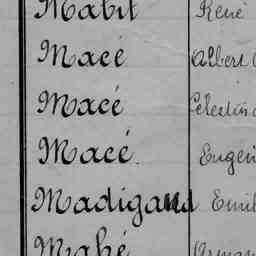 Mabit René
Macé Albert
Macé Célestin
Macé Eugèn
Madigand Emil
Mahé Arman